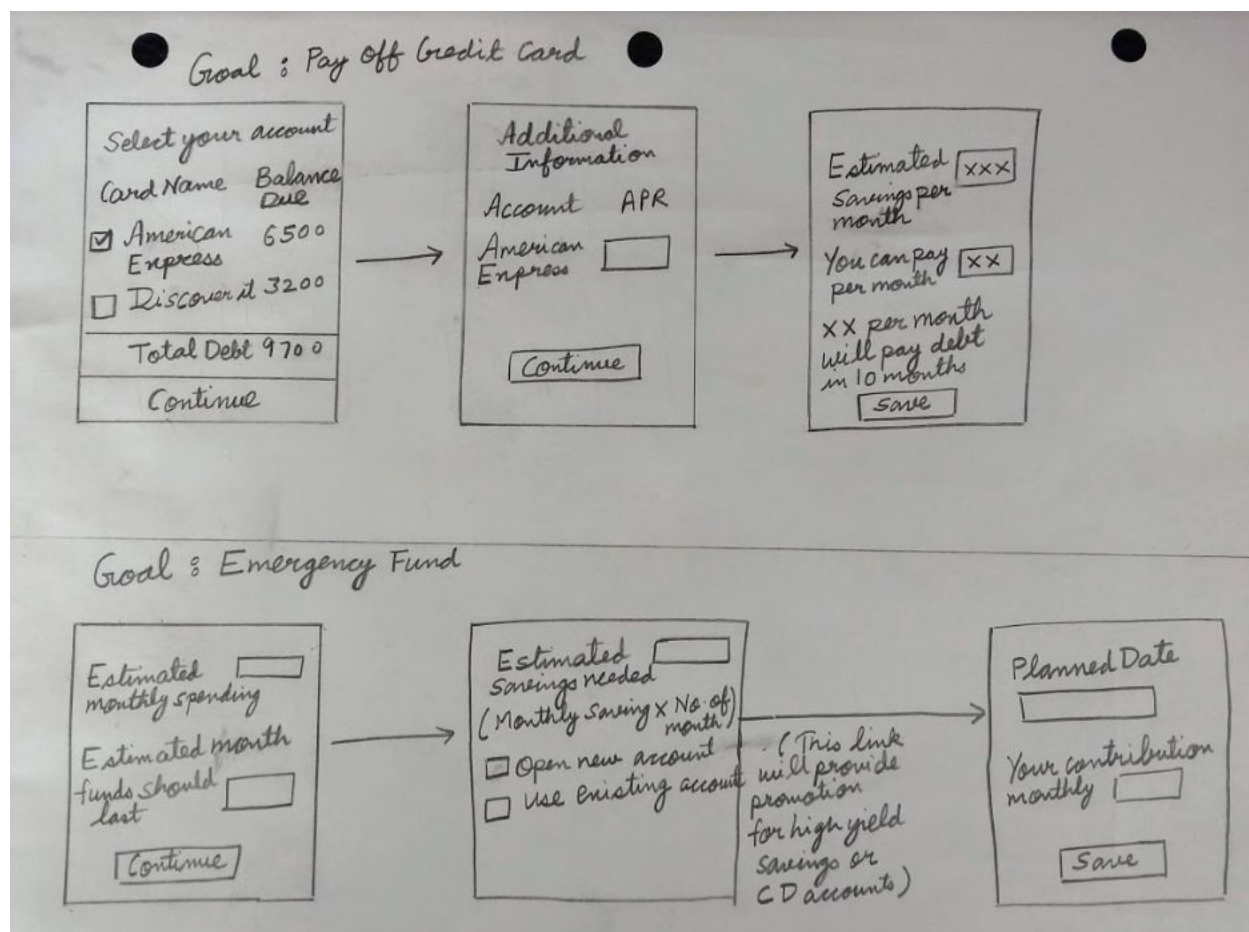 Goal : Pay Off Credit Card
Select your account
Card Name Balance Due
American Express 6500
Discover it 3200
Total Debt 9700
Continue
Additional
Information
Account APR
American
Express
Continue
Estimated XXX
Savings per
month
You can pay XX
per month
XX per month
will pay debt
in 10 months
Save
Goal : Emergency Fund
Estimated
monthly spending
Estimated month
funds should
last
Continue
Estimated
Savings needed
(Monthly Saving x No. of
month)
Open new account
Use existing account
(This link
will provide
promotion
for high yield
savings or
CD accounts)
Planned Date
Your contribution
monthly
Save